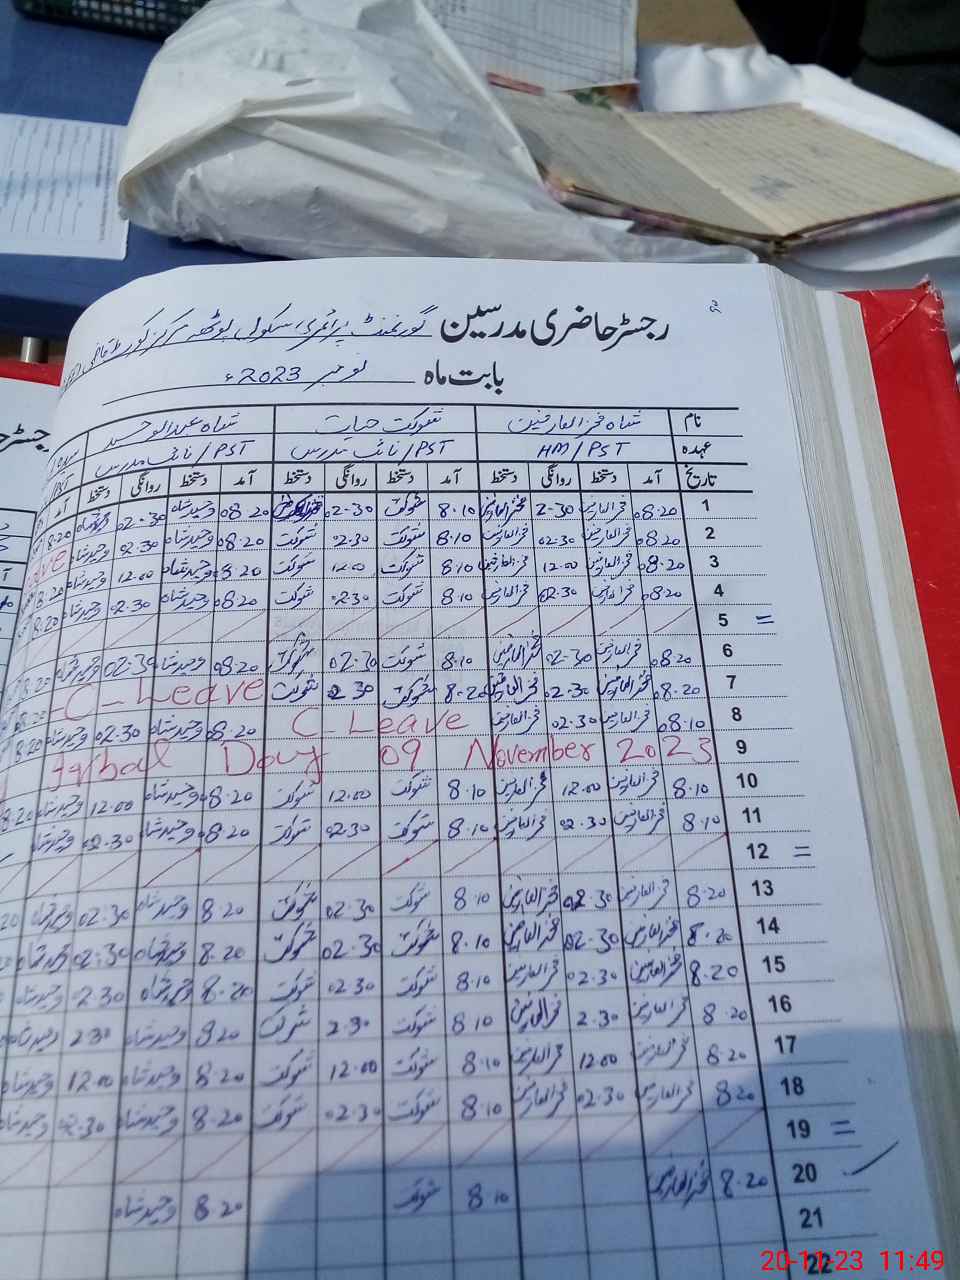 رجسٹر حاضری مدرسین گورنمنٹ پرائمری سکول
بابت ماہ نومبر 2023ء
نام شاہ فخر العارفین شوکت حیات شاہ عبدالوحید
عہدہ HM/PST PST/نائب مدرس PST/نائب مدرس
تاریخ آمد دستخط روانگی دستخط آمد دستخط روانگی دستخط آمد دستخط روانگی دستخط
1 08.20 فخر العارفین 2-30 فخر العارفین 8.10 شوکت 02-30 08.20 وحید شاہ 02.30
2 08.20 فخر العارفین 02.30 فخر العارفین 8.10 شوکت 02.30 شوکت 08.20 وحید شاہ 02.30 وحید شاہ
3 08.20 فخر العارفین 12.00 فخر العارفین 8.10 شوکت 12.00 شوکت 08.20 وحید شاہ 12.00 وحید شاہ
4 08.20 فخر العارفین 02.30 فخر العارفین 8.10 شوکت 02.30 شوکت 08.20 وحید شاہ 02.30 وحید شاہ
5 =
6 08.20 فخر العارفین 02-30 فخر العارفین 8.10 شوکت 02.30 شوکت 08.20 وحید شاہ 02.30 وحید شاہ
7 08.20 فخر العارفین 02.30 فخر العارفین 8.20 شوکت 2 30 شوکت C-Leave
8 08.10 فخر العارفین 02.30 فخر العارفین C Leave 08.20 وحید شاہ 02.30 وحید شاہ
9 Iqbal Day 09 November 2023
10 8.10 فخر العارفین 12.00 فخر العارفین 8.10 شوکت 12.00 شوکت 08.20 وحید شاہ 12.00 وحید شاہ
11 8.10 فخر العارفین 02.30 فخر العارفین 8.10 شوکت 02.30 شوکت 08.20 وحید شاہ 02.30 وحید شاہ
12 =
13 8.20 فخر العارفین 02.30 فخر العارفین 8.10 شوکت 02.30 شوکت 8.20 وحید شاہ 02.30 وحید شاہ
14 8.20 فخر العارفین 02.30 فخر العارفین 8.10 شوکت 02.30 شوکت 8.20 وحید شاہ 02.30 وحید شاہ
15 8.20 فخر العارفین 02.30 فخر العارفین 8.10 شوکت 02.30 شوکت 8.20 وحید شاہ 02.30 وحید شاہ
16 8.20 فخر العارفین 2.30 فخر العارفین 8.10 شوکت 2.30 شوکت 8.20 وحید شاہ 2.30 وحید شاہ
17 8.20 فخر العارفین 12.00 فخر العارفین 8.10 شوکت 12.00 شوکت 8.20 وحید شاہ 12.00 وحید شاہ
18 8.20 فخر العارفین 02.30 فخر العارفین 8.10 شوکت 02.30 شوکت 8.20 وحید شاہ 02.30 وحید شاہ
19 =
20 8.20 فخر العارفین 8.10 شوکت 8.20 وحید شاہ
21
22
20-11-23 11:49